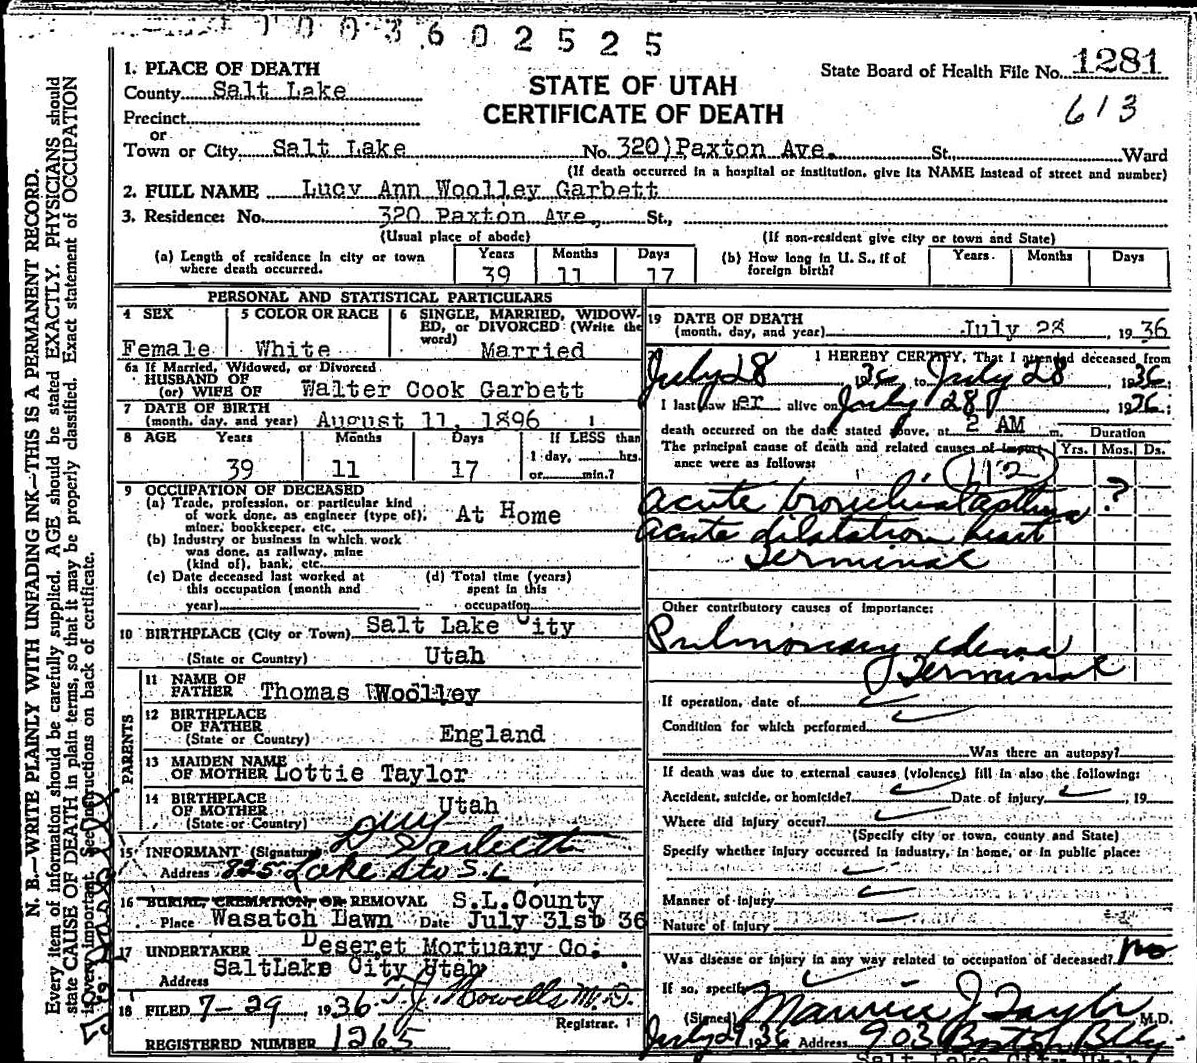 003602525
1281
State Board of Health File No.
613
STATE OF UTAH
CERTIFICATE OF DEATH
1. PLACE OF DEATH
County Salt Lake
Precinct
or
Town or City Salt Lake No. 320)Paxton Ave. St., Ward
(If death occurred in a hospital or institution, give its NAME instead of street and number)
2. FULL NAME Lucy Ann Woolley Garbett
3. Residence: No. 320 Paxton Ave., St.,
(Usual place of abode) (If non-resident give city or town and State)
(a) Length of residence in city or town where death occurred. Years 39 Months 11 Days 17
(b) How long in U. S., if of foreign birth? Years Months Days
PERSONAL AND STATISTICAL PARTICULARS
4 SEX Female
5 COLOR OR RACE White
6 SINGLE, MARRIED, WIDOWED, or DIVORCED (Write the word) Married
6a If Married, Widowed, or Divorced
HUSBAND OF
(or) WIFE OF Walter Cook Garbett
7 DATE OF BIRTH
(month, day, and year) August 11, 1896
8 AGE Years 39 Months 11 Days 17
If LESS than
1 day, hrs.
or min.?
9 OCCUPATION OF DECEASED
(a) Trade, profession, or particular kind
of work done, as engineer (type of),
miner, bookkeeper, etc. At Home
(b) Industry or business in which work
was done, as railway, mine
(kind of), bank, etc.
(c) Date deceased last worked at
this occupation (month and
year)
(d) Total time (years)
spent in this
occupation
10 BIRTHPLACE (City or Town) Salt Lake City
(State or Country) Utah
PARENTS
11 NAME OF
FATHER Thomas Woolley
12 BIRTHPLACE
OF FATHER
(State or Country) England
13 MAIDEN NAME
OF MOTHER Lottie Taylor
14 BIRTHPLACE
OF MOTHER
(State or Country) Utah
15 INFORMANT (Signature) Garbett
Address 825 Lake St. S.L.
16 BURIAL, CREMATION, OR REMOVAL S.L.County
Place Wasatch Lawn Date July 31st 36
17 UNDERTAKER Deseret Mortuary Co.
Address SaltLake City Utah
18 FILED 7-29, 1936 T.J. Howells M.D.
Registrar.
REGISTERED NUMBER 1265
19 DATE OF DEATH
(month, day, and year) July 28, 1936
I HEREBY CERTIFY, That I attended deceased from
July 28 1936 to July 28 1936
I last saw her alive on July 28 1936
death occurred on the date stated above, at 2 AM m.
Duration
Yrs. Mos. Ds.
The principal cause of death and related causes of import
ance were as follows:
112
acute bronchial asthma ?
acute dilatation heart
Terminal
Other contributory causes of importance:
Pulmonary edema
Terminal
If operation, date of
Condition for which performed
Was there an autopsy?
If death was due to external causes (violence) fill in also the following:
Accident, suicide, or homicide? Date of injury , 19
Where did injury occur?
(Specify city or town, county and State)
Specify whether injury occurred in industry, in home, or in public place:
Manner of injury
Nature of injury
Was disease or injury in any way related to occupation of deceased? no
If so, specify
(Signed) Maurice J Taylor M.D.
July 29 1936 Address 903 Boston Bldg
Salt Lake City Utah
N. B.—WRITE PLAINLY WITH UNFADING INK—THIS IS A PERMANENT RECORD.
Every item of information should be carefully supplied. AGE should be stated EXACTLY. PHYSICIANS should
state CAUSE OF DEATH in plain terms, so that it may be properly classified. Exact statement of OCCUPATION
is very important. See instructions on back of certificate.